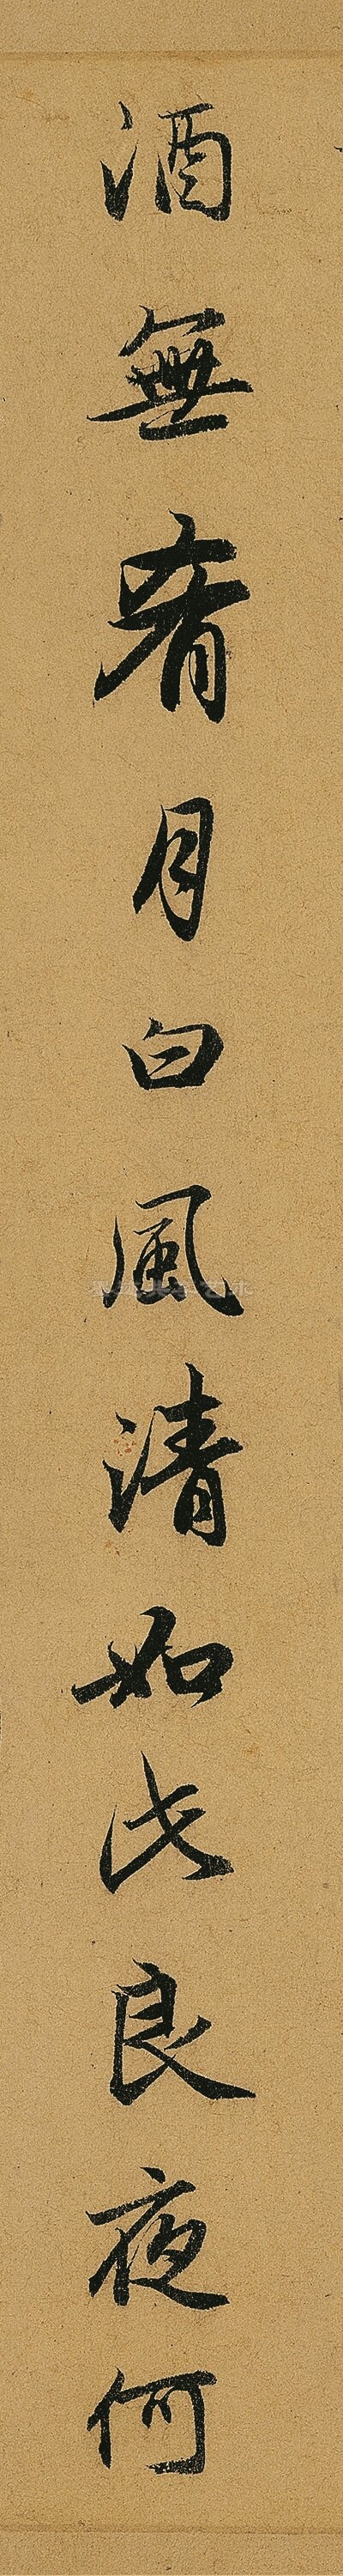 酒無肴月白風清如此良夜何